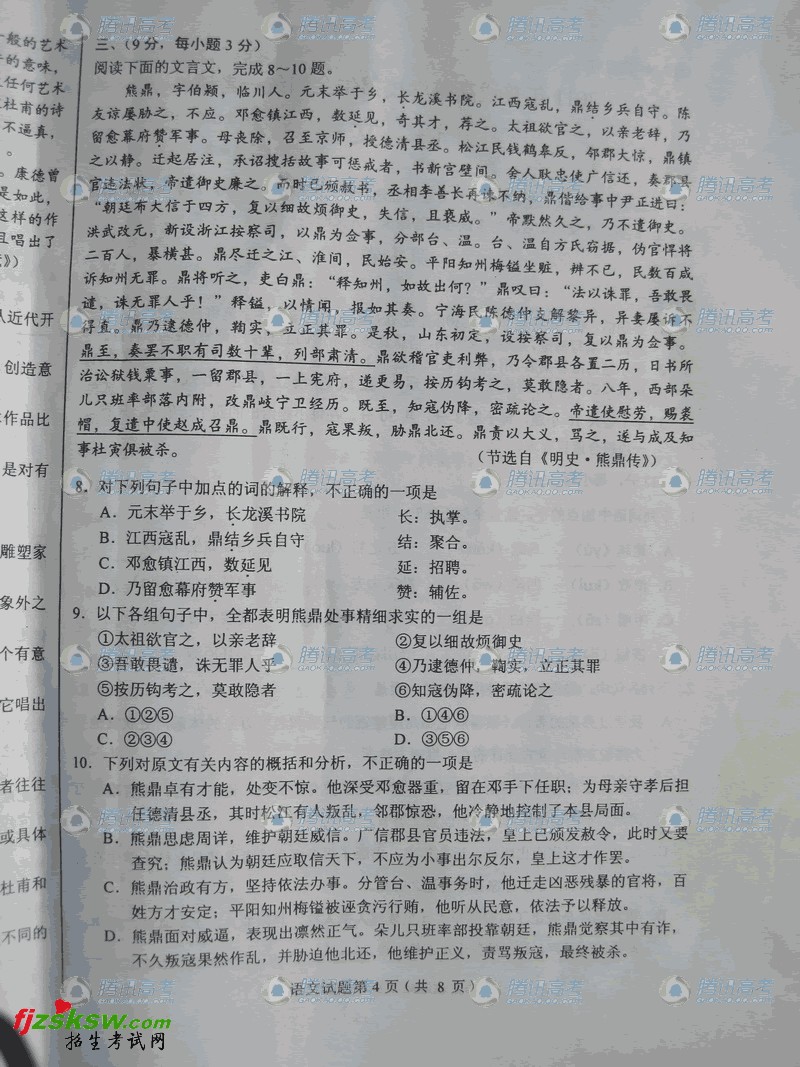 三、(9分，每小题3分)
阅读下面的文言文，完成8～10题。
熊鼎，字伯颖，临川人。元末举于乡，长龙溪书院。江西寇乱，鼎结乡兵自守。陈
友谅屡胁之，不应。邓愈镇江西，数延见，奇其才，荐之。太祖欲官之，以亲老辞，乃
留愈幕府赞军事。母丧除，召至京师，授德清县丞。松江民钱鹤皋反，邻郡大惊，鼎镇
之以静。迁起居注，承诏搜括故事可惩戒者，书新宫壁间。舍人耿忠使广信还，奏郡县
官违法状，帝遣御史廉之。而时已颁赦书，丞相李善长再谏不纳，鼎偕给事中尹正进曰：
“朝廷布大信于四方，复以细故烦御史，失信，且亵威。”帝默然久之，乃不遣御史。
洪武改元，新设浙江按察司，以鼎为佥事，分部台、温。台、温自方氏窃据，伪官悍将
二百人，暴横甚。鼎尽迁之江、淮间，民始安。平阳知州梅镒坐赃，辨不已，民数百咸
诉知州无罪。鼎将听之，吏白鼎：“释知州，如故出何？”鼎叹曰：“法以诛罪，吾敢畏
谴，诛无罪人乎！”释镒，以情闻，报如其奏。宁海民陈德仲支解黎异，异妻屡诉不
得直。鼎乃逮德仲，鞠实，立正其罪。是秋，山东初定，设按察司，复以鼎为佥事。
鼎至，奏罢不职有司数十辈，列部肃清。鼎欲稽官吏利弊，乃令郡县各置二历，日书所
治讼狱钱粟事，一留郡县，一上宪府，递更易，按历钩考之，莫敢隐者。八年，西部朵
儿只班率部落内附，改鼎岐宁卫经历。既至，知寇伪降，密疏论之。帝遣使慰劳，赐裘
帽，复遣中使赵成召鼎。鼎既行，寇果叛，胁鼎北还。鼎责以大义，骂之，遂与成及知
事杜寅俱被杀。
(节选自《明史·熊鼎传》)
8．对下列句子中加点的词的解释，不正确的一项是
A．元末举于乡，长龙溪书院 长：执掌。
B．江西寇乱，鼎结乡兵自守 结：聚合。
C．邓愈镇江西，数延见 延：招聘。
D．乃留愈幕府赞军事 赞：辅佐。
9．以下各组句子中，全都表明熊鼎处事精细求实的一组是
①太祖欲官之，以亲老辞 ②复以细故烦御史
③吾敢畏谴，诛无罪人乎 ④乃逮德仲，鞫实，立正其罪
⑤按历钩考之，莫敢隐者 ⑥知寇伪降，密疏论之
A．①②⑤ B．①④⑥
C．②③④ D．③⑤⑥
10．下列对原文有关内容的概括和分析，不正确的一项是
A．熊鼎卓有才能，处变不惊。他深受邓愈器重，留在邓手下任职；为母亲守孝后担
任德清县丞，其时松江有人叛乱，邻郡惊恐，他冷静地控制了本县局面。
B．熊鼎思虑周详，维护朝廷威信。广信郡县官员违法，皇上已颁发赦令，此时又要
查究；熊鼎认为朝廷应取信天下，不应为小事出尔反尔，皇上这才作罢。
C．熊鼎治政有方，坚持依法办事。分管台、温事务时，他迁走凶恶残暴的官将，百
姓方才安定；平阳知州梅镒被诬贪污行贿，他听从民意，依法予以释放。
D．熊鼎面对威逼，表现出凛然正气。朵儿只班率部投靠朝廷，熊鼎觉察其中有诈，
不久叛寇果然作乱，并胁迫他北还，他维护正义，责骂叛寇，最终被杀。
语文试题第4页(共 8 页)
般的艺术
的意味，
任何艺术
杜甫的诗
不逼真，
康德曾
是如此，
这样的作
且唱出了
》)
从近代开
创造意
作品比
是对有
雕塑家
象外之
个有意
它唱出
者往往
或具体
杜甫和
不同的
腾讯高考
fjzsksw.com
招生考试网